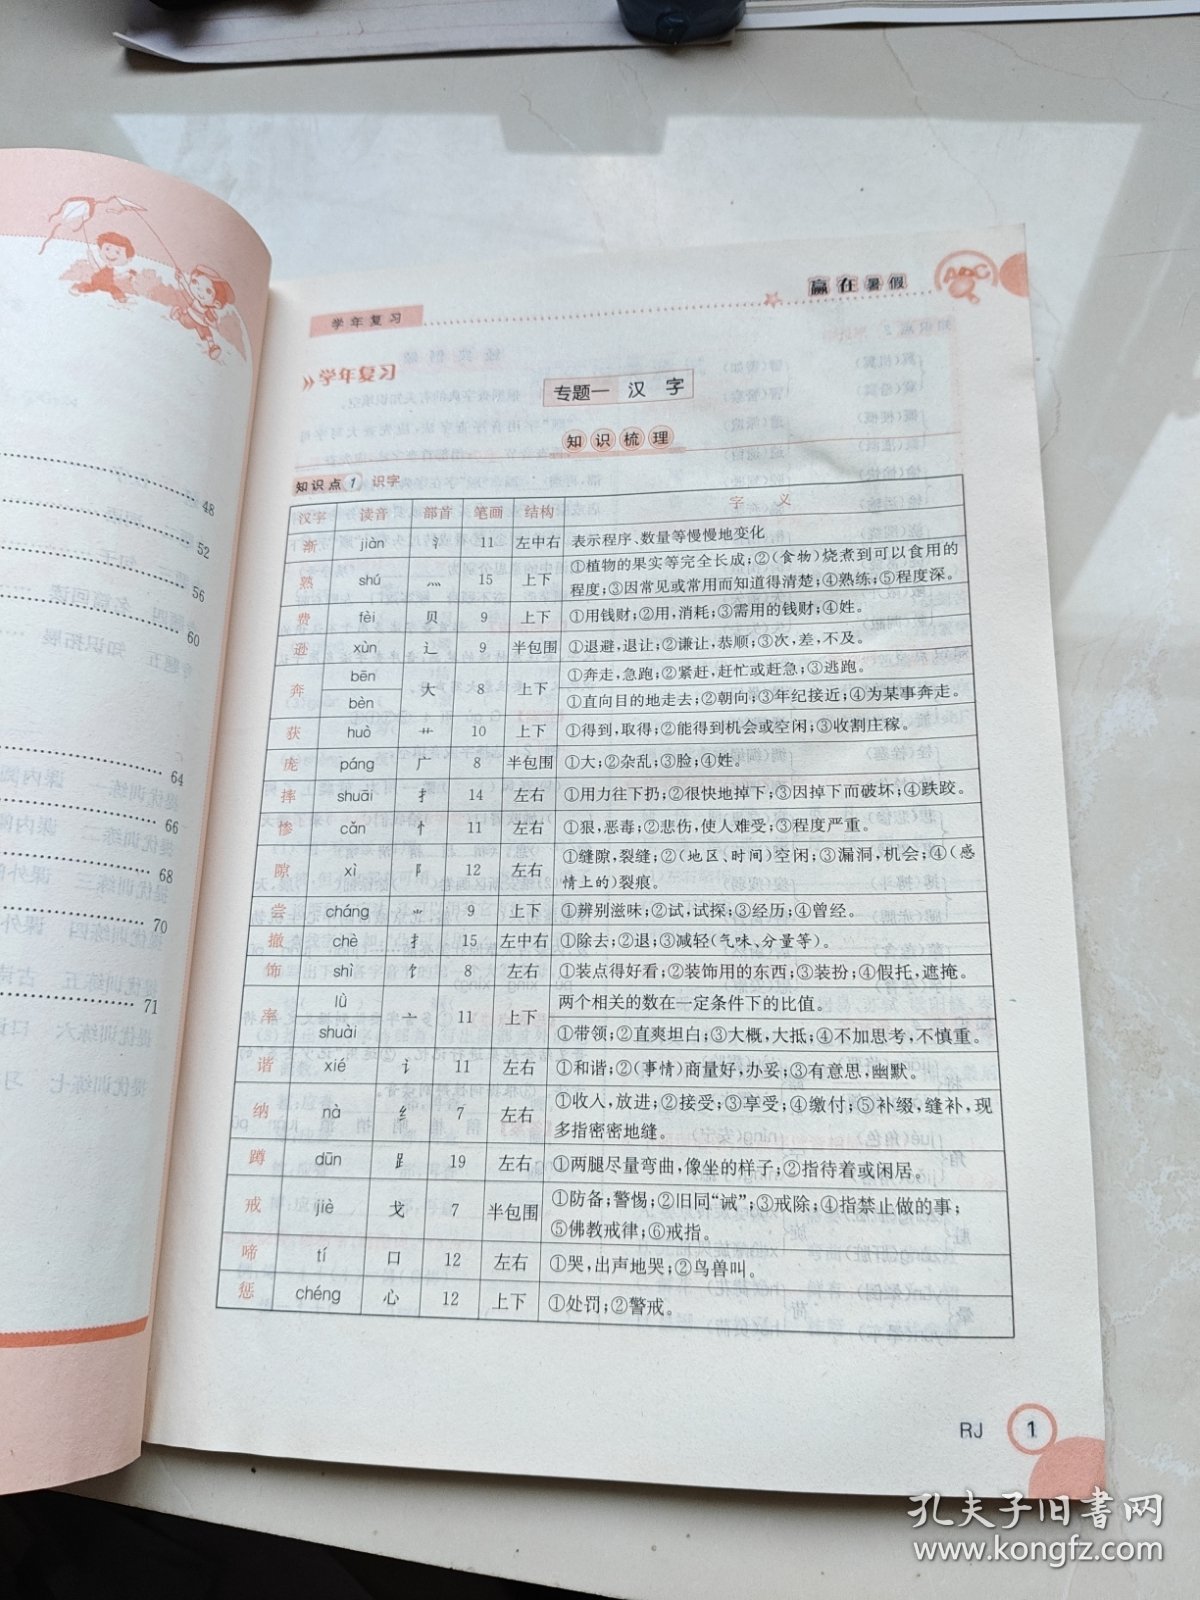 学年复习
赢在暑假
ABC
学年复习
专题一 汉 字
知识梳理
知识点1 识字
汉字 读音 部首 笔画 结构 字 义
渐 jiàn 氵 11 左中右 表示程序、数量等慢慢地变化
熟 shú 灬 15 上下 ①植物的果实等完全长成;②(食物)烧煮到可以食用的
程度;③因常见或常用而知道得清楚;④熟练;⑤程度深。
费 fèi 贝 9 上下 ①用钱财;②用,消耗;③需用的钱财;④姓。
逊 xùn 辶 9 半包围 ①退避,退让;②谦让,恭顺;③次,差,不及。
奔 bēn 大 8 上下 ①奔走,急跑;②紧赶,赶忙或赶急;③逃跑。
bèn ①直向目的地走去;②朝向;③年纪接近;④为某事奔走。
获 huò 艹 10 上下 ①得到,取得;②能得到机会或空闲;③收割庄稼。
庞 páng 广 8 半包围 ①大;②杂乱;③脸;④姓。
摔 shuāi 扌 14 左右 ①用力往下扔;②很快地掉下;③因掉下而破坏;④跌跤。
惨 cǎn 忄 11 左右 ①狠,恶毒;②悲伤,使人难受;③程度严重。
隙 xì 阝 12 左右 ①缝隙,裂缝;②(地区、时间)空闲;③漏洞,机会;④(感
情上的)裂痕。
尝 cháng ⺌ 9 上下 ①辨别滋味;②试,试探;③经历;④曾经。
撤 chè 扌 15 左中右 ①除去;②退;③减轻(气味、分量等)。
饰 shì 饣 8 左右 ①装点得好看;②装饰用的东西;③装扮;④假托,遮掩。
率 lǜ 亠 11 上下 两个相关的数在一定条件下的比值。
shuài ①带领;②直爽坦白;③大概,大抵;④不加思考,不慎重。
谐 xié 讠 11 左右 ①和谐;②(事情)商量好,办妥;③有意思,幽默。
纳 nà 纟 7 左右 ①收入,放进;②接受;③享受;④缴付;⑤补缀,缝补,现
多指密密地缝。
蹲 dūn ⻊ 19 左右 ①两腿尽量弯曲,像坐的样子;②指待着或闲居。
戒 jiè 戈 7 半包围 ①防备;警惕;②旧同“诫”;③戒除;④指禁止做的事;
⑤佛教戒律;⑥戒指。
啼 tí 口 12 左右 ①哭,出声地哭;②鸟兽叫。
惩 chéng 心 12 上下 ①处罚;②警戒。
RJ 1
48
52
56
60
64
66
68
70
71
孔夫子旧书网
www.kongfz.com